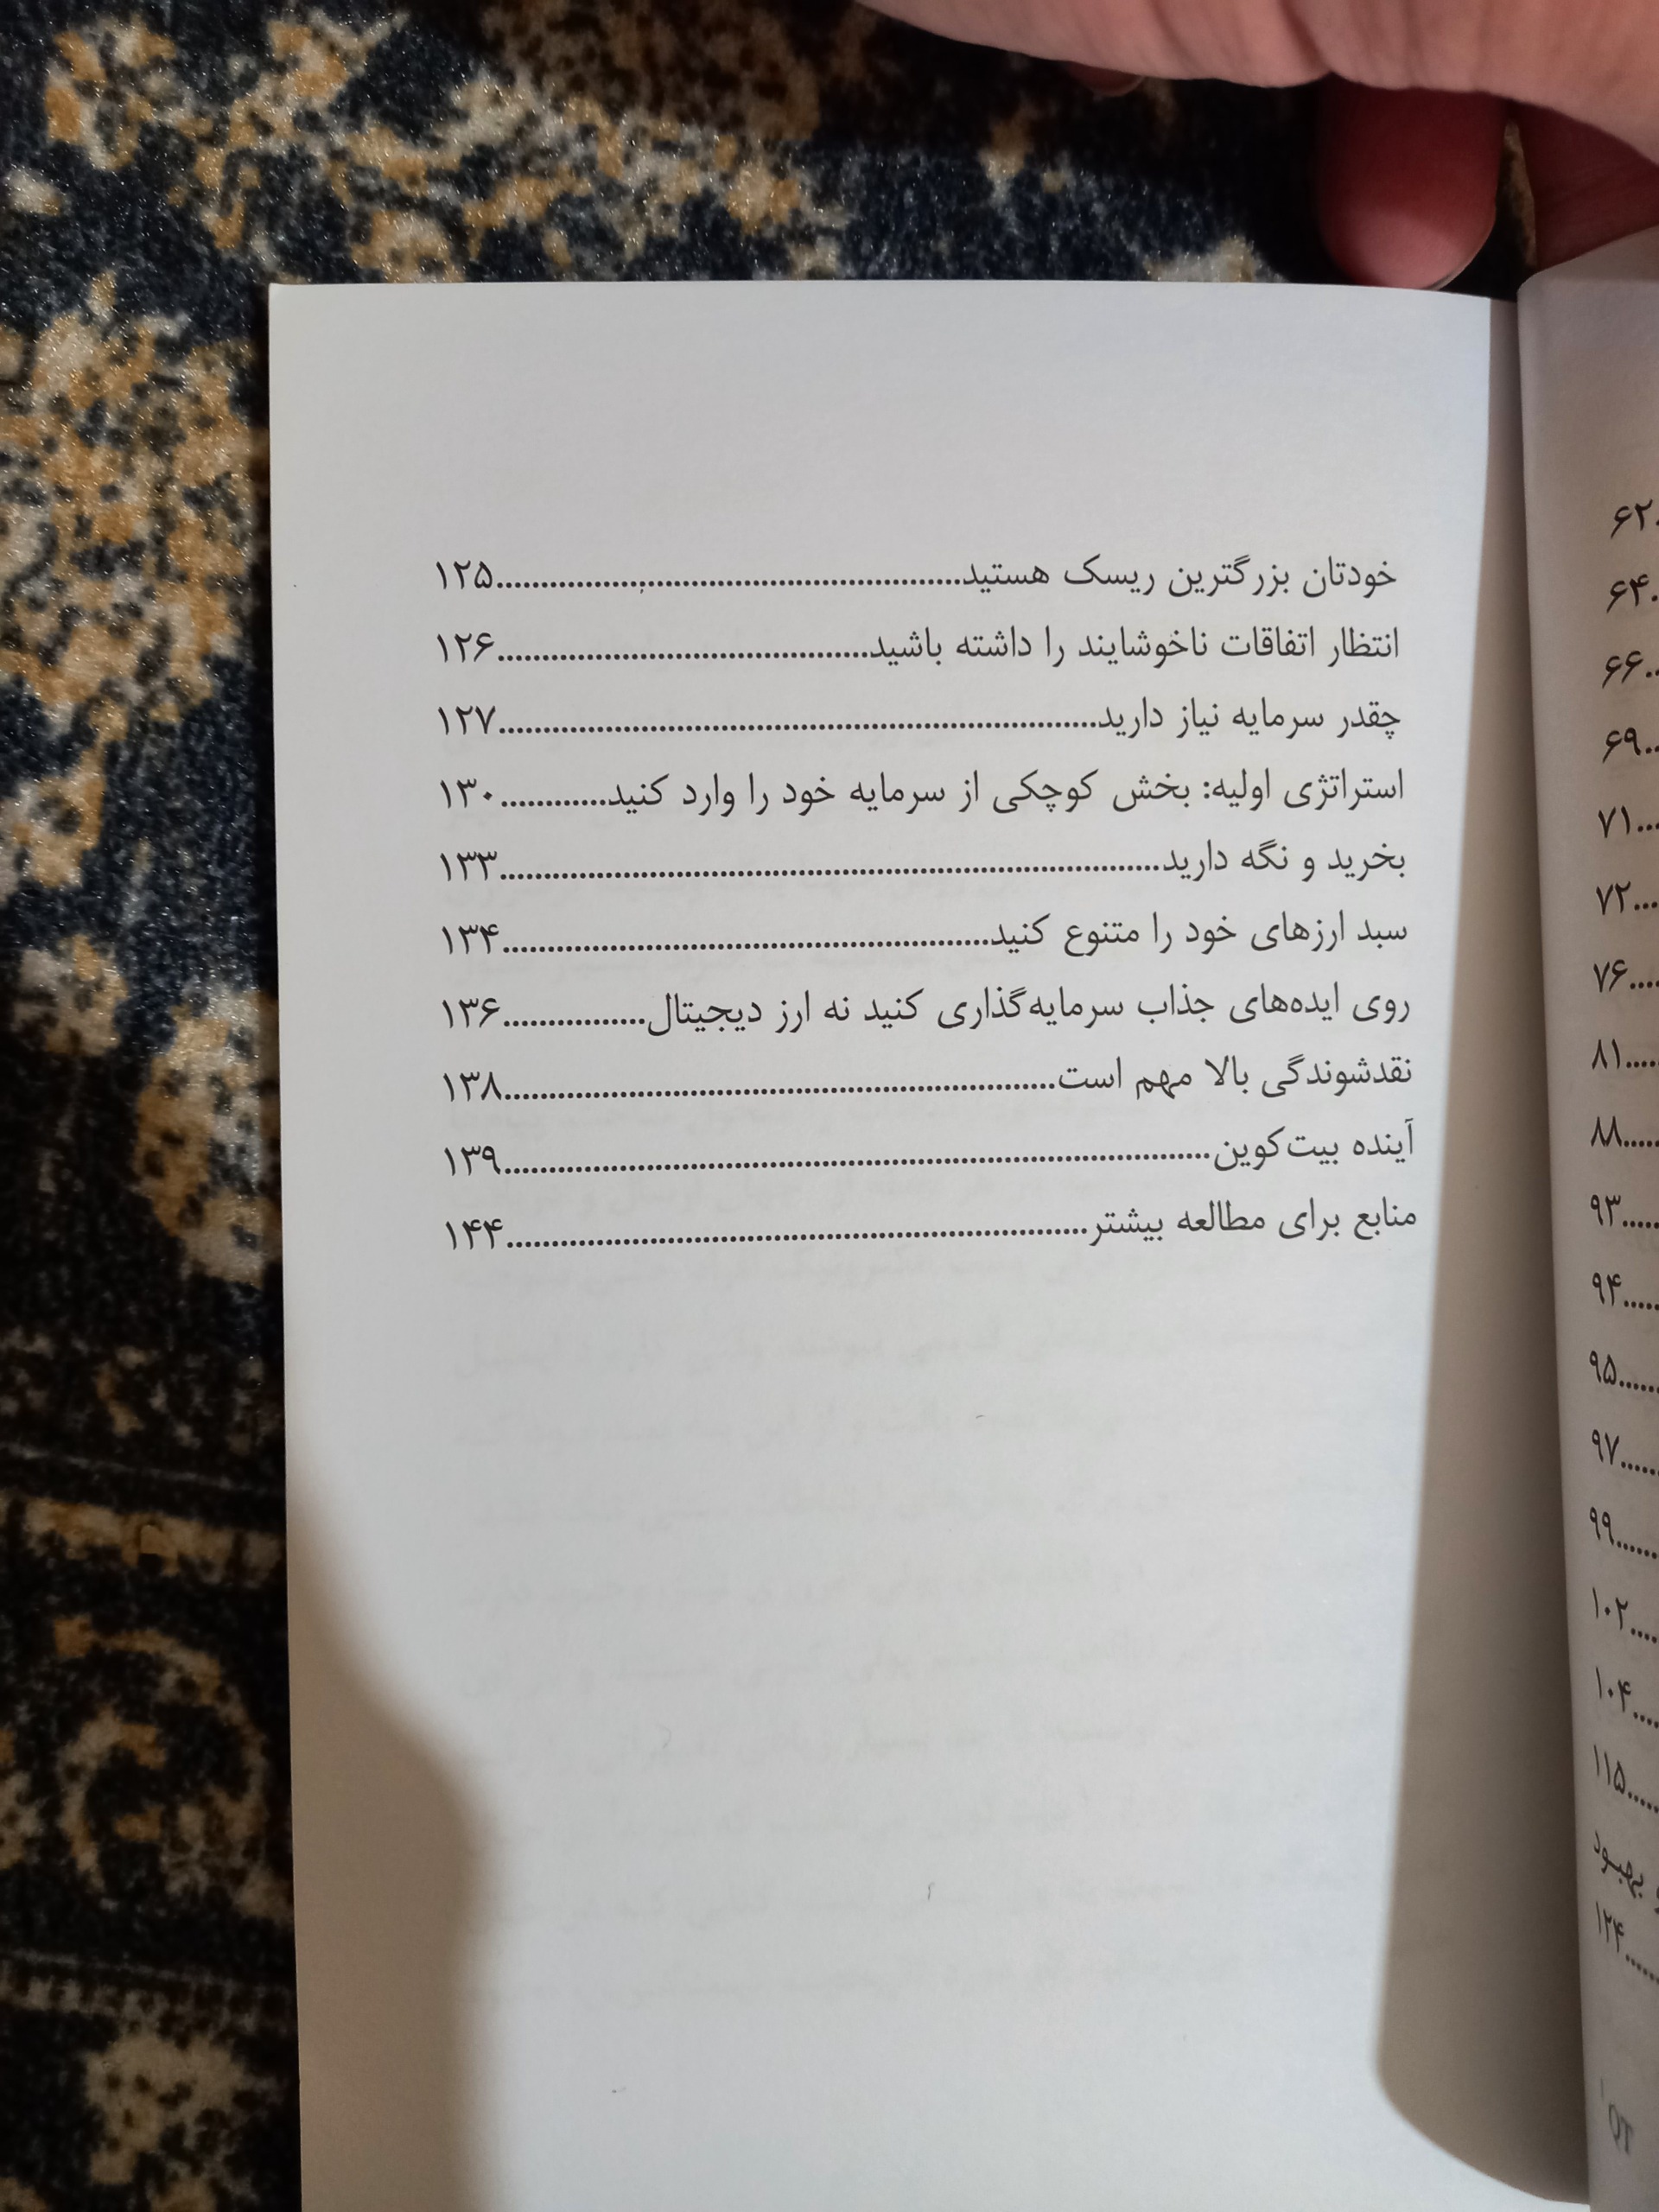 خودتان بزرگترین ریسک هستید..........۱۲۵
انتظار اتفاقات ناخوشایند را داشته باشید..........۱۲۶
چقدر سرمایه نیاز دارید..........۱۲۷
استراتژی اولیه: بخش کوچکی از سرمایه خود را وارد کنید..........۱۳۰
بخرید و نگه دارید..........۱۳۳
سبد ارزهای خود را متنوع کنید..........۱۳۴
روی ایده‌های جذاب سرمایه‌گذاری کنید نه ارز دیجیتال..........۱۳۶
نقدشوندگی بالا مهم است..........۱۳۸
آینده بیت‌کوین..........۱۳۹
منابع برای مطالعه بیشتر..........۱۴۴
۶۲
۶۴
۶۶
۶۹
۷۱
۷۲
۷۶
۸۱
۸۸
۹۳
۹۴
۹۵
۹۷
۹۹
۱۰۲
۱۰۴
۱۱۵
بهبود
۱۲۴